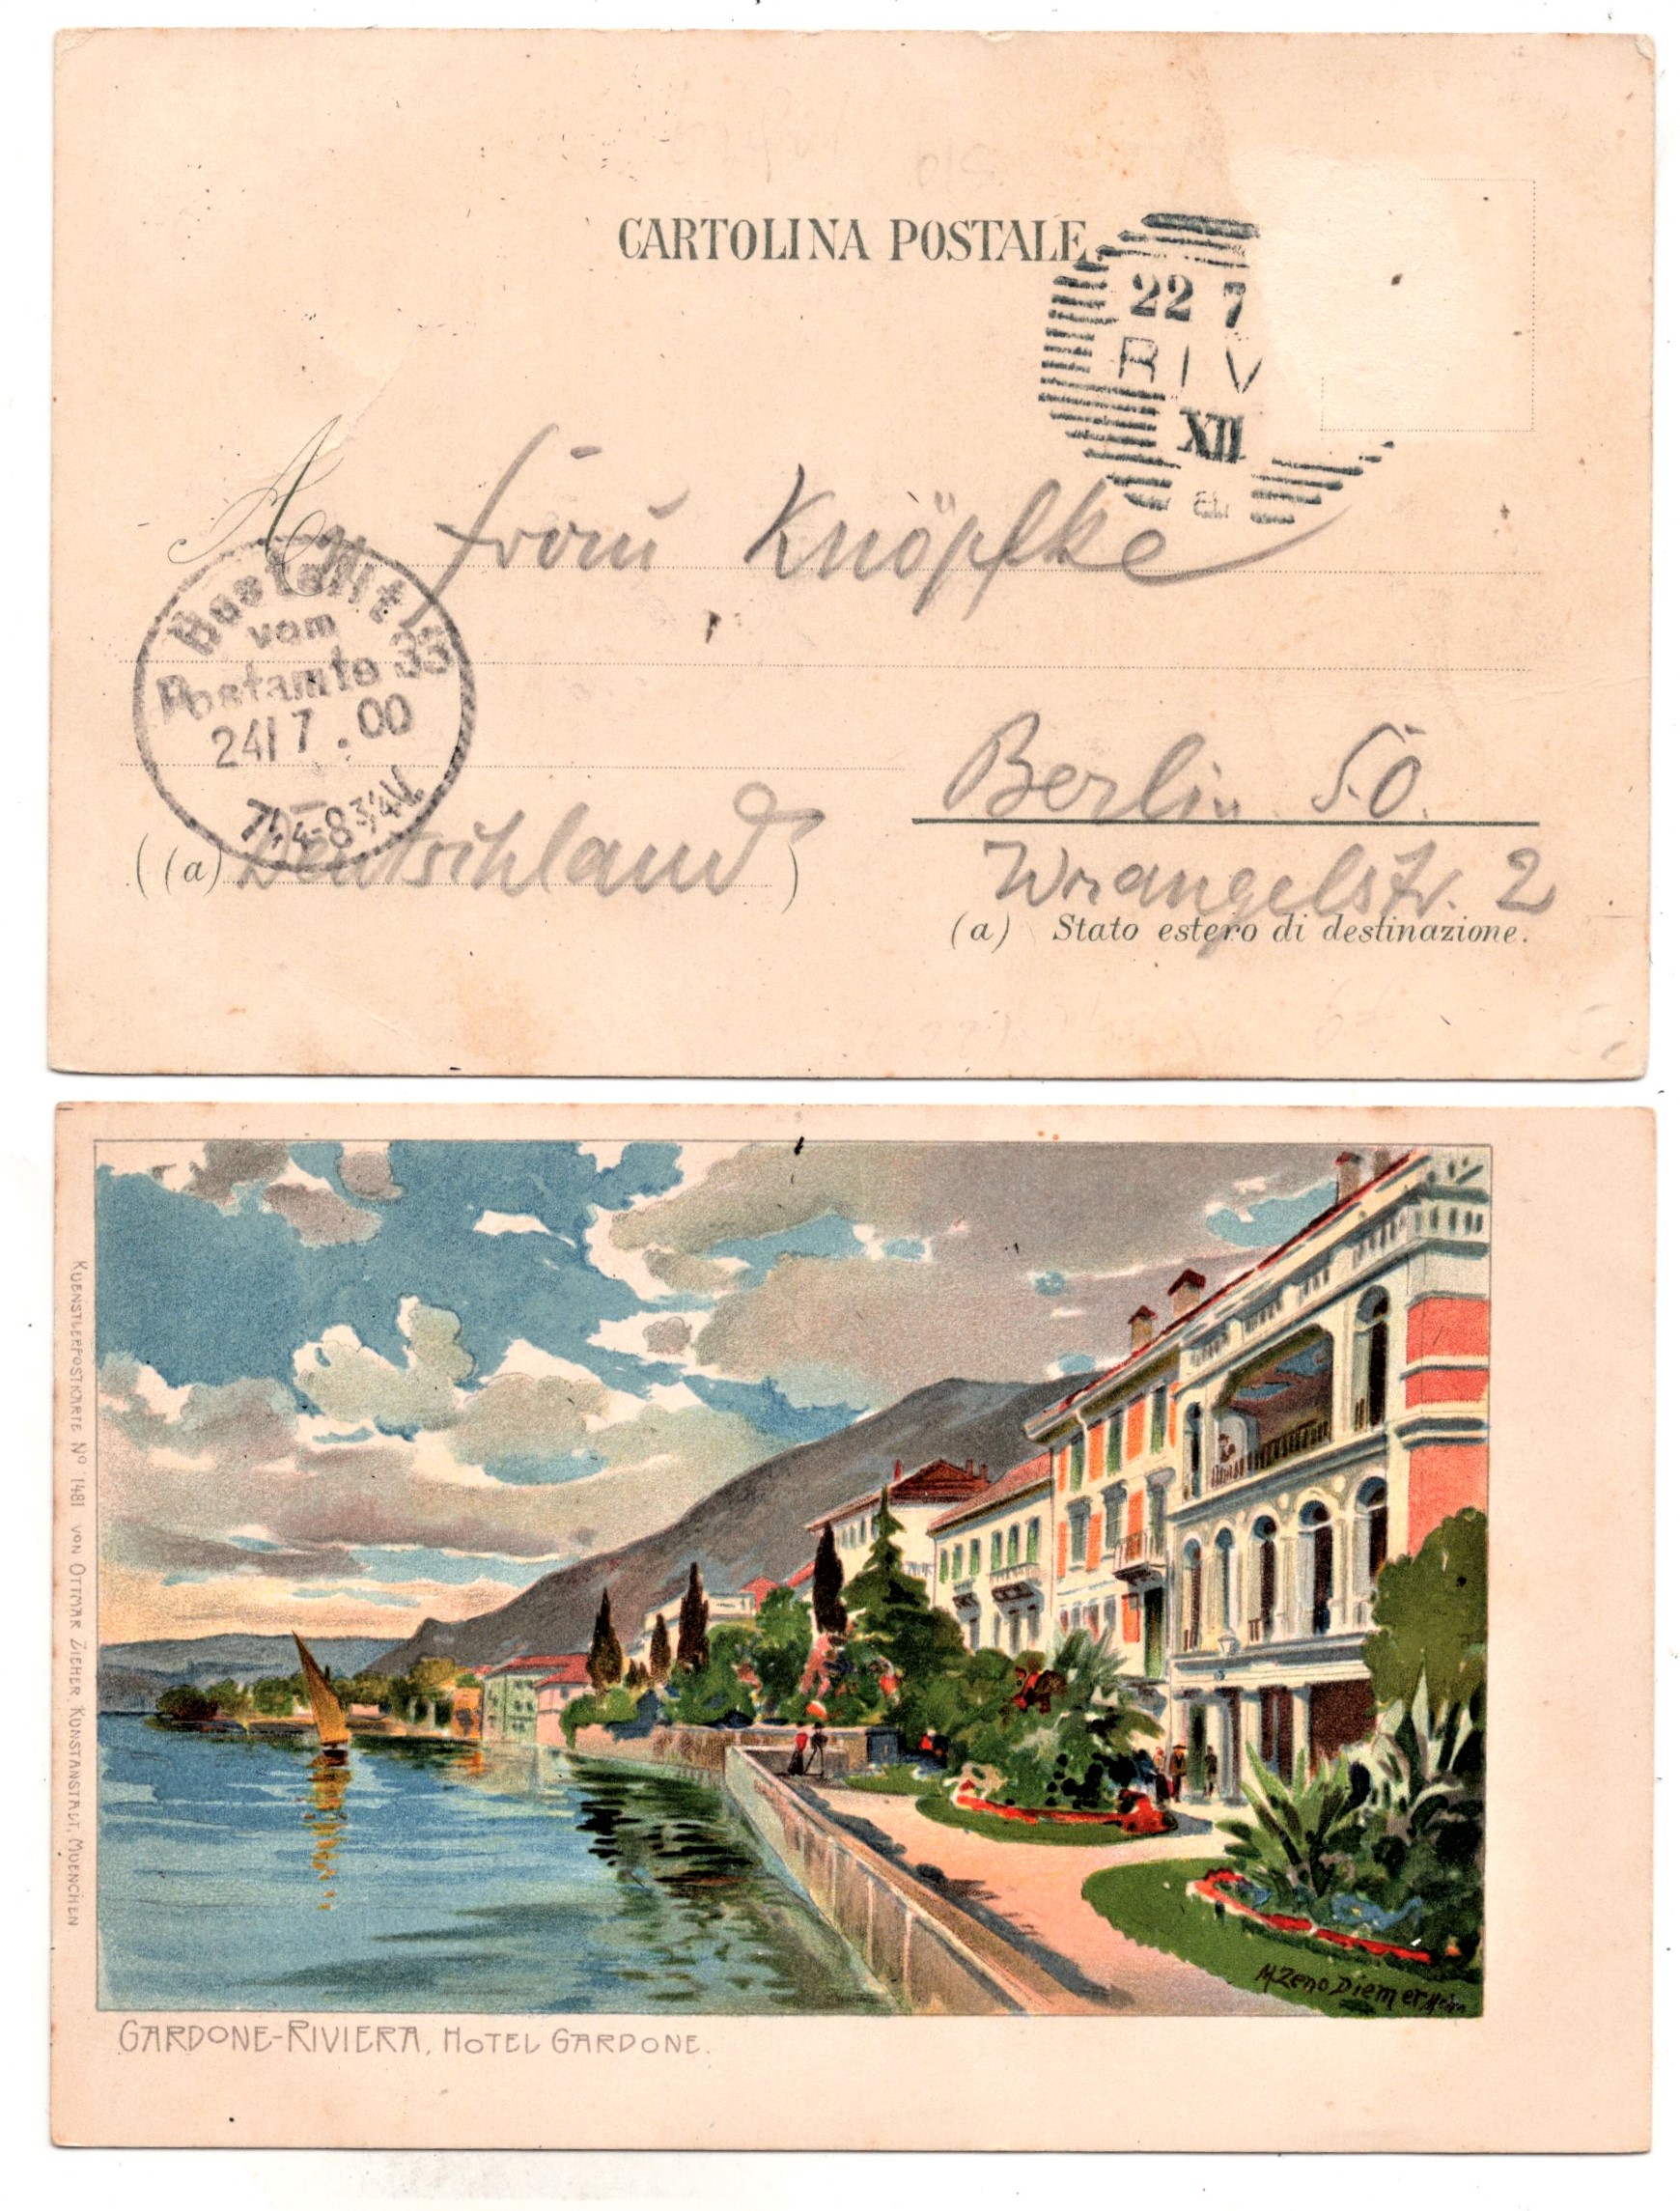 CARTOLINA POSTALE
22 7
RIV
XII
A Frau Knöpfke
Bestellt
vom
Postamte 33
24/7.00
7¼-8¾V.
Berlin S.O.
((a) Deutschland)
Wrangelstr. 2
(a) Stato estero di destinazione.
KUENSTLERPOSTKARTE No 1481 VON OTTMAR ZIEHER, KUNSTANSTALT, MUENCHEN
M. Zeno Diemer
GARDONE-RIVIERA, HOTEL GARDONE.